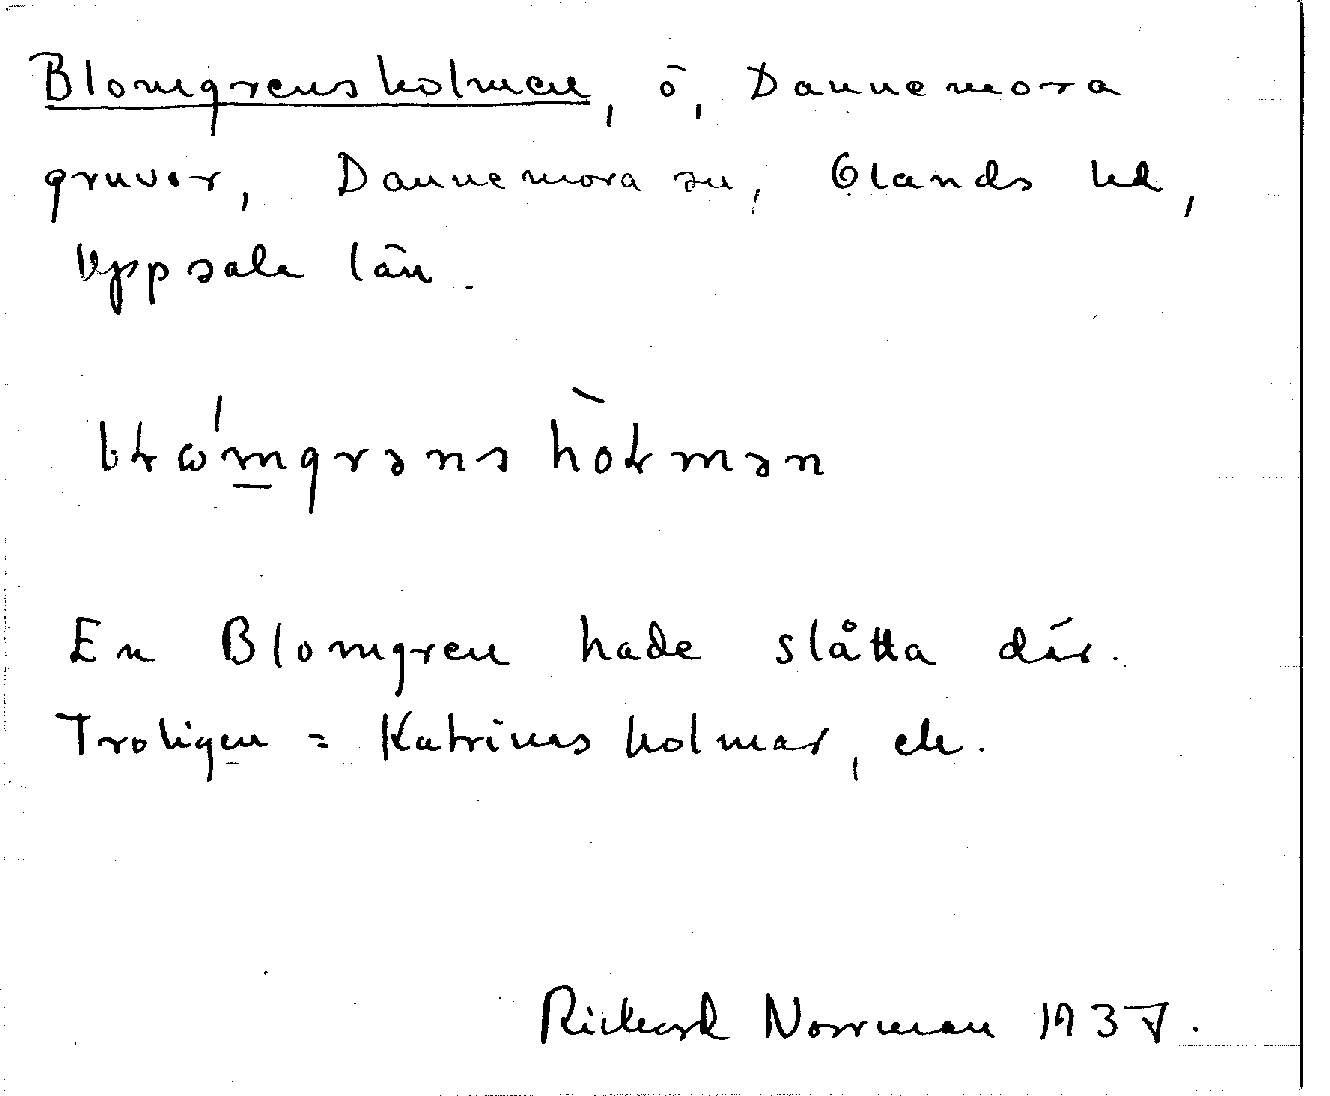 Blomgrensholmen, ö, Dannemora
gruvor, Dannemora sn, Olands hd,
Uppsala län.
En Blomgren hade slåtta där.
Troligen = Katrinas holmar,
Rickard Norrman 1937.